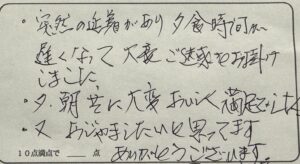 ・突然の延着があり夕食時間が
遅くなって大変ご迷惑をお掛け
しました
・夕、朝共に大変おいしく満足でした
・又おじゃましたいと思ってます
ありがとうございます。
10点満点で 点